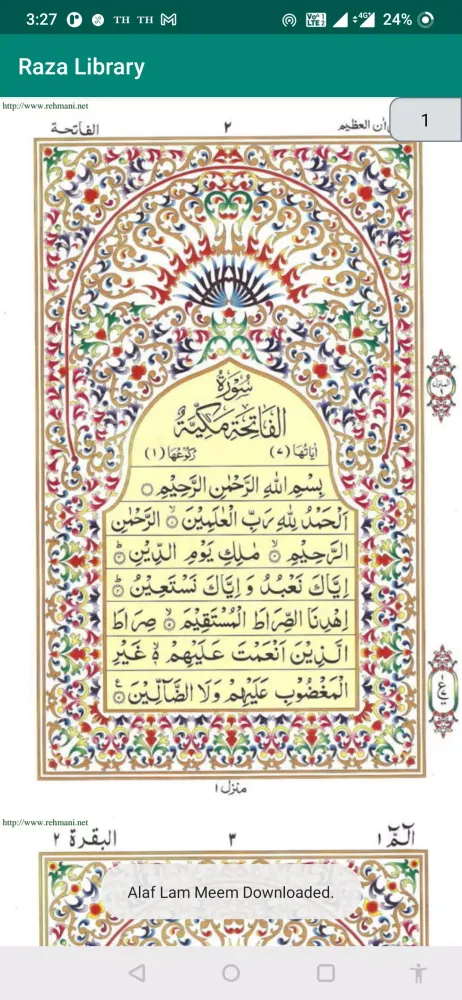 3:27 TH TH Vo 1 LTE 2 4G+ 24%
Raza Library
http://www.rehmani.net
1
الفاتحة ٢ العظيم
سُوْرَةُ
الْفَاتِحَةِ مَكِّيَّةٌ
اٰيَاتُهَا (٧) رُكُوْعُهَا (١)
بِسْمِ اللّٰهِ الرَّحْمٰنِ الرَّحِيْمِ ۝
اَلْحَمْدُ لِلّٰهِ رَبِّ الْعٰلَمِيْنَ ۝ الرَّحْمٰنِ
الرَّحِيْمِ ۝ مٰلِكِ يَوْمِ الدِّيْنِ ۝
اِيَّاكَ نَعْبُدُ وَ اِيَّاكَ نَسْتَعِيْنُ ۝
اِهْدِنَا الصِّرَاطَ الْمُسْتَقِيْمَ ۝ صِرَاطَ
الَّذِيْنَ اَنْعَمْتَ عَلَيْهِمْ ۝ غَيْرِ
الْمَغْضُوْبِ عَلَيْهِمْ وَلَا الضَّآلِّيْنَ ۝
منزل ١
http://www.rehmani.net
الٓمّٓ ١ ٣ البقرة ٢
Alaf Lam Meem Downloaded.